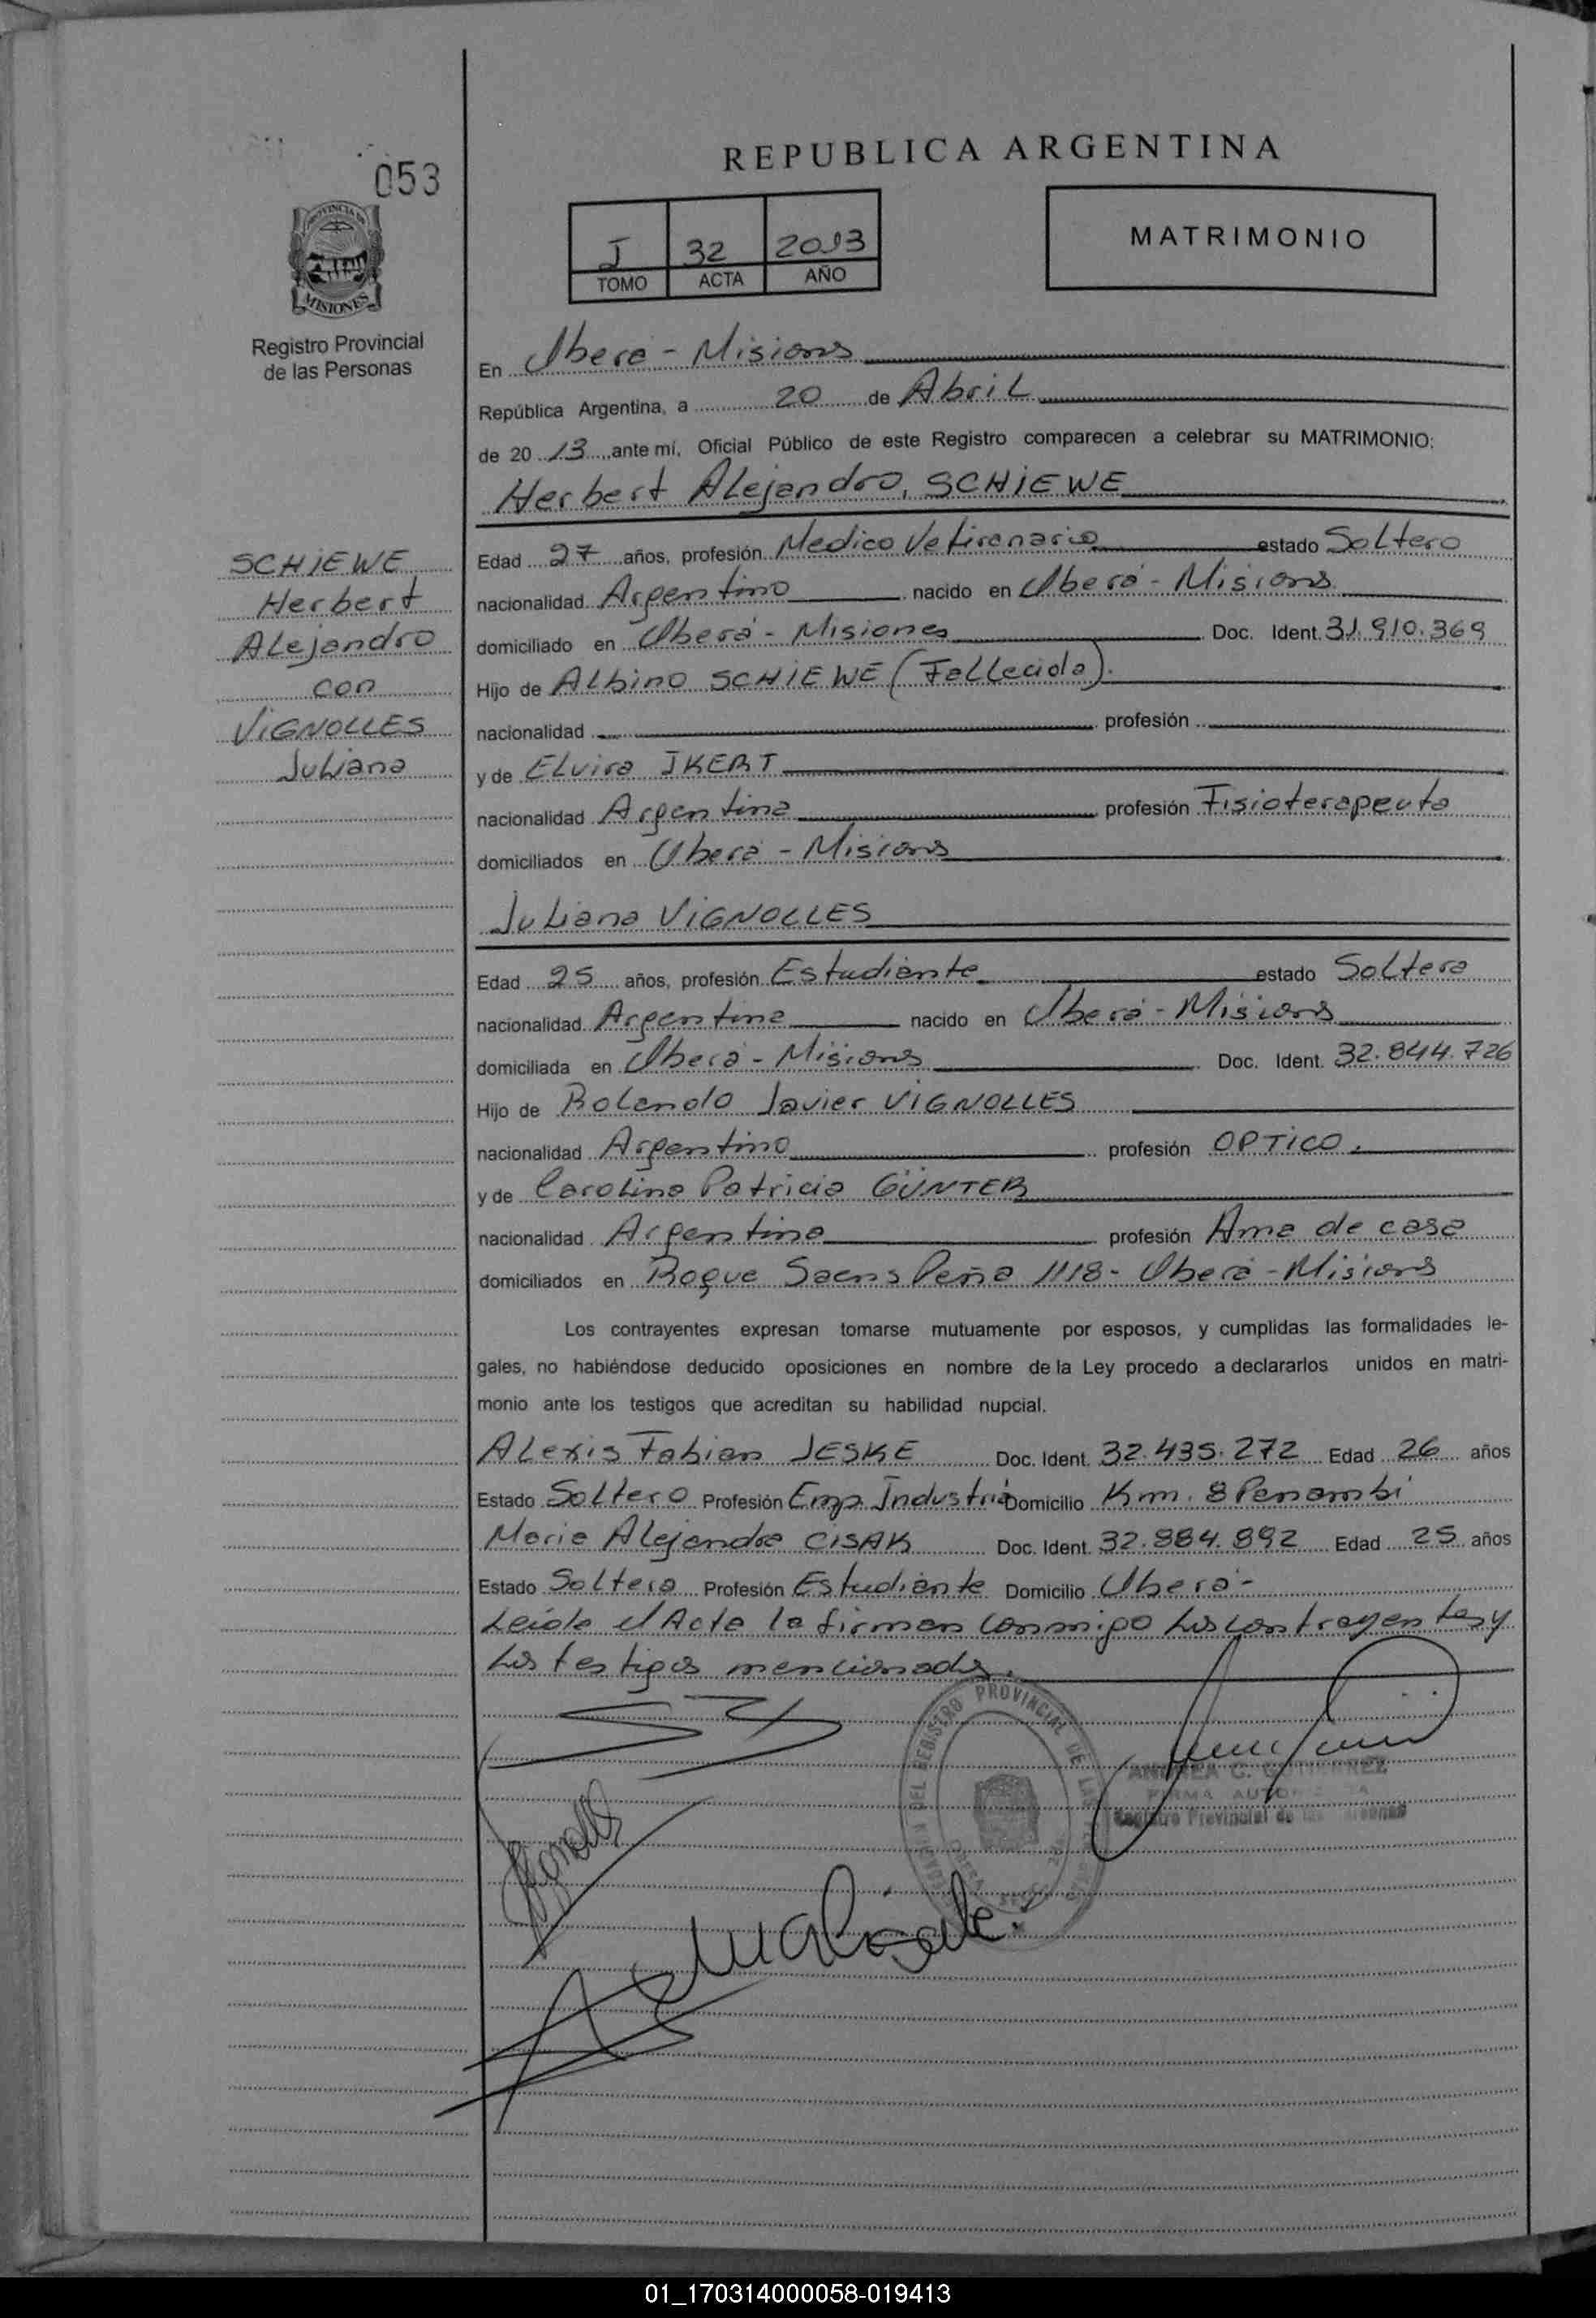 053
PROVINCIA DE
MISIONES
Registro Provincial
de las Personas
REPUBLICA ARGENTINA
I 32 2013
TOMO ACTA AÑO
MATRIMONIO
En Oberá - Misiones
República Argentina, a 20 de Abril
de 2013 ante mi, Oficial Público de este Registro comparecen a celebrar su MATRIMONIO:
Herbert Alejandro, SCHIEWE
SCHIEWE
Herbert
Alejandro
con
VIGNOLLES
Juliana
Edad 27 años, profesión Medico Vetirenario estado Soltero
nacionalidad Argentino nacido en Oberá - Misiones
domiciliado en Oberá - Misiones Doc. Ident. 31.910.369
Hijo de Albino SCHIEWE (Fallecido).
nacionalidad profesión
y de Elvira IKERT
nacionalidad Argentina profesión Fisioterapeuta
domiciliados en Oberá - Misiones
Juliana VIGNOLLES
Edad 25 años, profesión Estudiante estado Soltera
nacionalidad Argentina nacido en Oberá - Misiones
domiciliada en Oberá - Misiones Doc. Ident. 32.844.726
Hijo de Rolando Javier VIGNOLLES
nacionalidad Argentino profesión OPTICO.
y de Carolina Patricia GÜNTER
nacionalidad Argentina profesión Ama de casa
domiciliados en Roque Saens Peña 1118- Oberá - Misiones
Los contrayentes expresan tomarse mutuamente por esposos, y cumplidas las formalidades le-
gales, no habiéndose deducido oposiciones en nombre de la Ley procedo a declararlos unidos en matri-
monio ante los testigos que acreditan su habilidad nupcial.
Alexis Fabian JESKE Doc. Ident. 32.435.272 Edad 26 años
Estado Soltero Profesión Emp. Industria Domicilio Km. 8 Panambi
Maria Alejandra CISAK Doc. Ident. 32.884.892 Edad 25 años
Estado Soltera Profesión Estudiante Domicilio Oberá-
Leida el Acta la firman conmigo los contrayentes y
los testigos mencionados.
REGISTRO PROVINCIAL DE LAS
ANDREA C. GUTIERREZ
FIRMA AUTORIZADA
Registro Provincial de las Personas
01_170314000058-019413